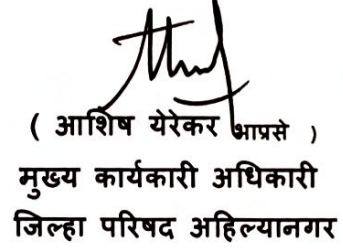 ( आशिष येरेकर भाप्रसे )
मुख्य कार्यकारी अधिकारी
जिल्हा परिषद अहिल्यानगर